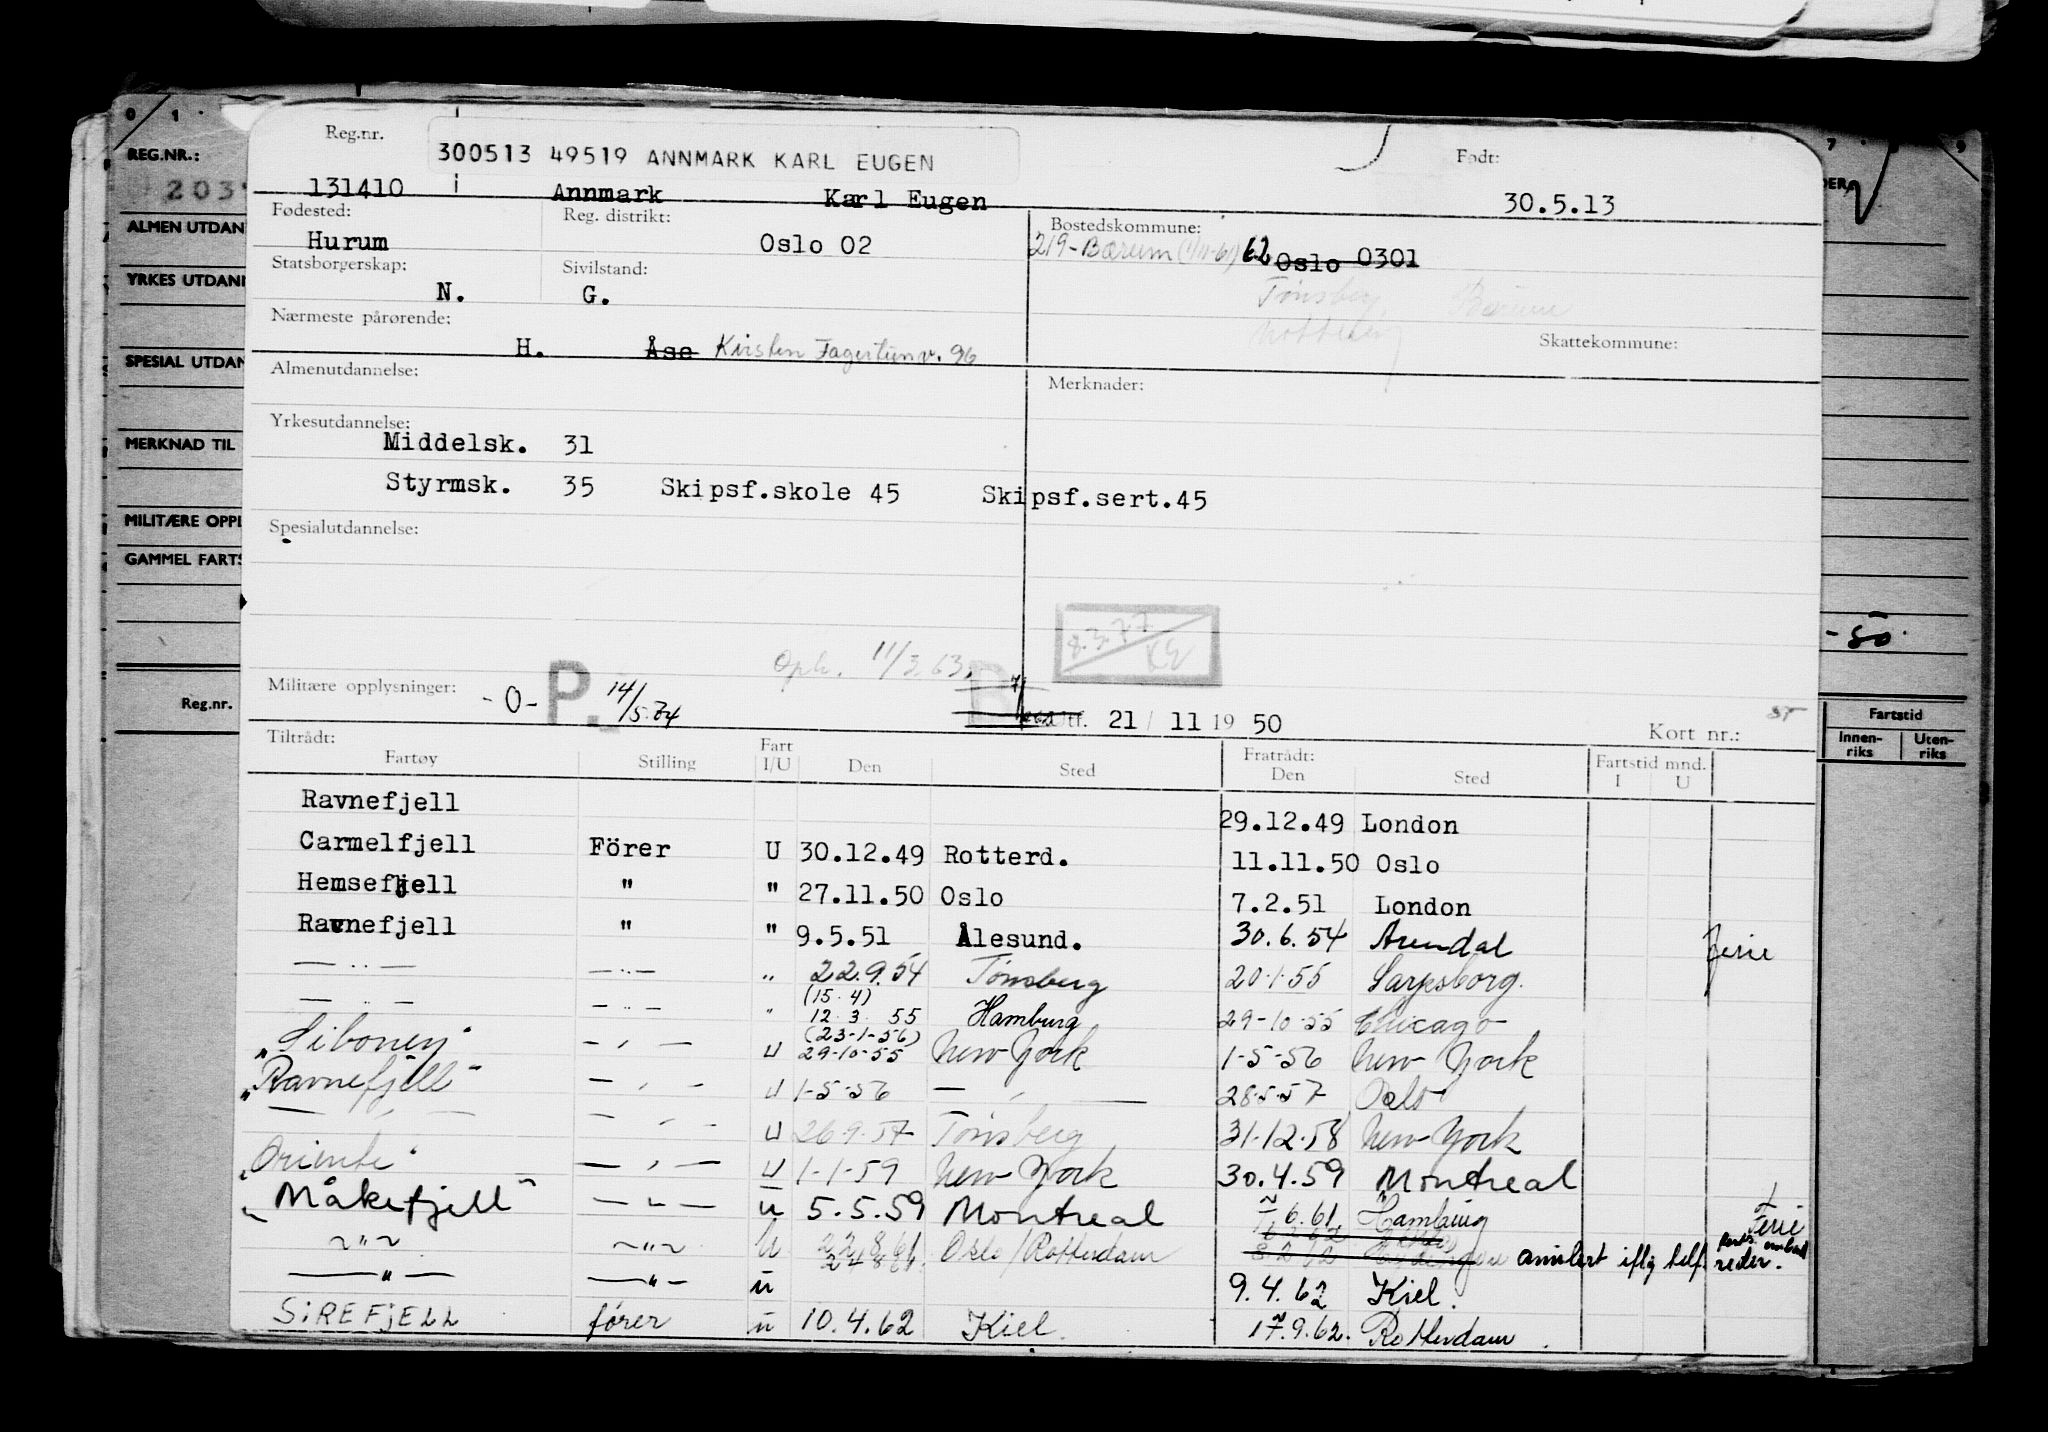 0 1
7 9
REG.NR.:
203
ALMEN UTDAN
YRKES UTDANN
SPESIAL UTDAN
MERKNAD TIL
MILITÆRE OPPL
GAMMEL FARTS
Reg.nr.
- 50.
Fartstid
Innen-riks Uten-riks
Reg.nr. 300513 49519 ANNMARK KARL EUGEN Født:
131410 Annmark Karl Eugen 30.5.13
Fødested: Reg. distrikt: Bostedskommune:
Hurum Oslo 02 219-Bærum (1/11-61) 62 Oslo 0301
Statsborgerskap: Sivilstand: Tønsberg, Bærum
N. G. Nøtterøy
Nærmeste pårørende: Skattekommune:
H. Åse Kirsten Fagertunv. 96
Almenutdannelse: Merknader:
Yrkesutdannelse:
Middelsk. 31
Styrmsk. 35 Skipsf.skole 45 Skipsf.sert.45
Spesialutdannelse:
8.3.77
Oph. 11/3.63.
Militære opplysninger: -0- P. 14/5.74 B 21/ 11 19 50 ST
Tiltrådt: Kort nr.:
Fartøy Stilling Fart I/U Den Sted Fratrådt: Den Sted Fartstid mnd. I U
Ravnefjell 29.12.49 London
Carmelfjell Förer U 30.12.49 Rotterd. 11.11.50 Oslo
Hemsefjell " " 27.11.50 Oslo 7.2.51 London
Ravnefjell " " 9.5.51 Ålesund. 30.6.54 Arendal Ferie
— .. — — .. — " 22.9.54 Tønsberg 20.1.55 Sarpsborg.
(15.4)
— .. — — .. — " 12.3.55 Hamburg 29-10-55 Chicago
(23-1-56)
"Siboney" — , — U 29-10-55 New York 1-5-56 New York
"Ravnefjell" — , — U 1-5-56 — , — 28.5.57 Oslo
— , — — , — U 26.9.57 Tønsberg 31-12-58 New York
"Oriente" — , — U 1-1-59 New York 30.4.59 Montreal
"Måkefjell" — " — u 5.5.59 Montreal 6.61 Hamburg Ferie
~"~ ~"~ U 22.8.61 Oslo/Rotterdam 8.2.62 reder.
—"— —"— u 9.4.62 Kiel.
SIREFJELL fører u 10.4.62 Kiel. 17.9.62. Rotterdam.